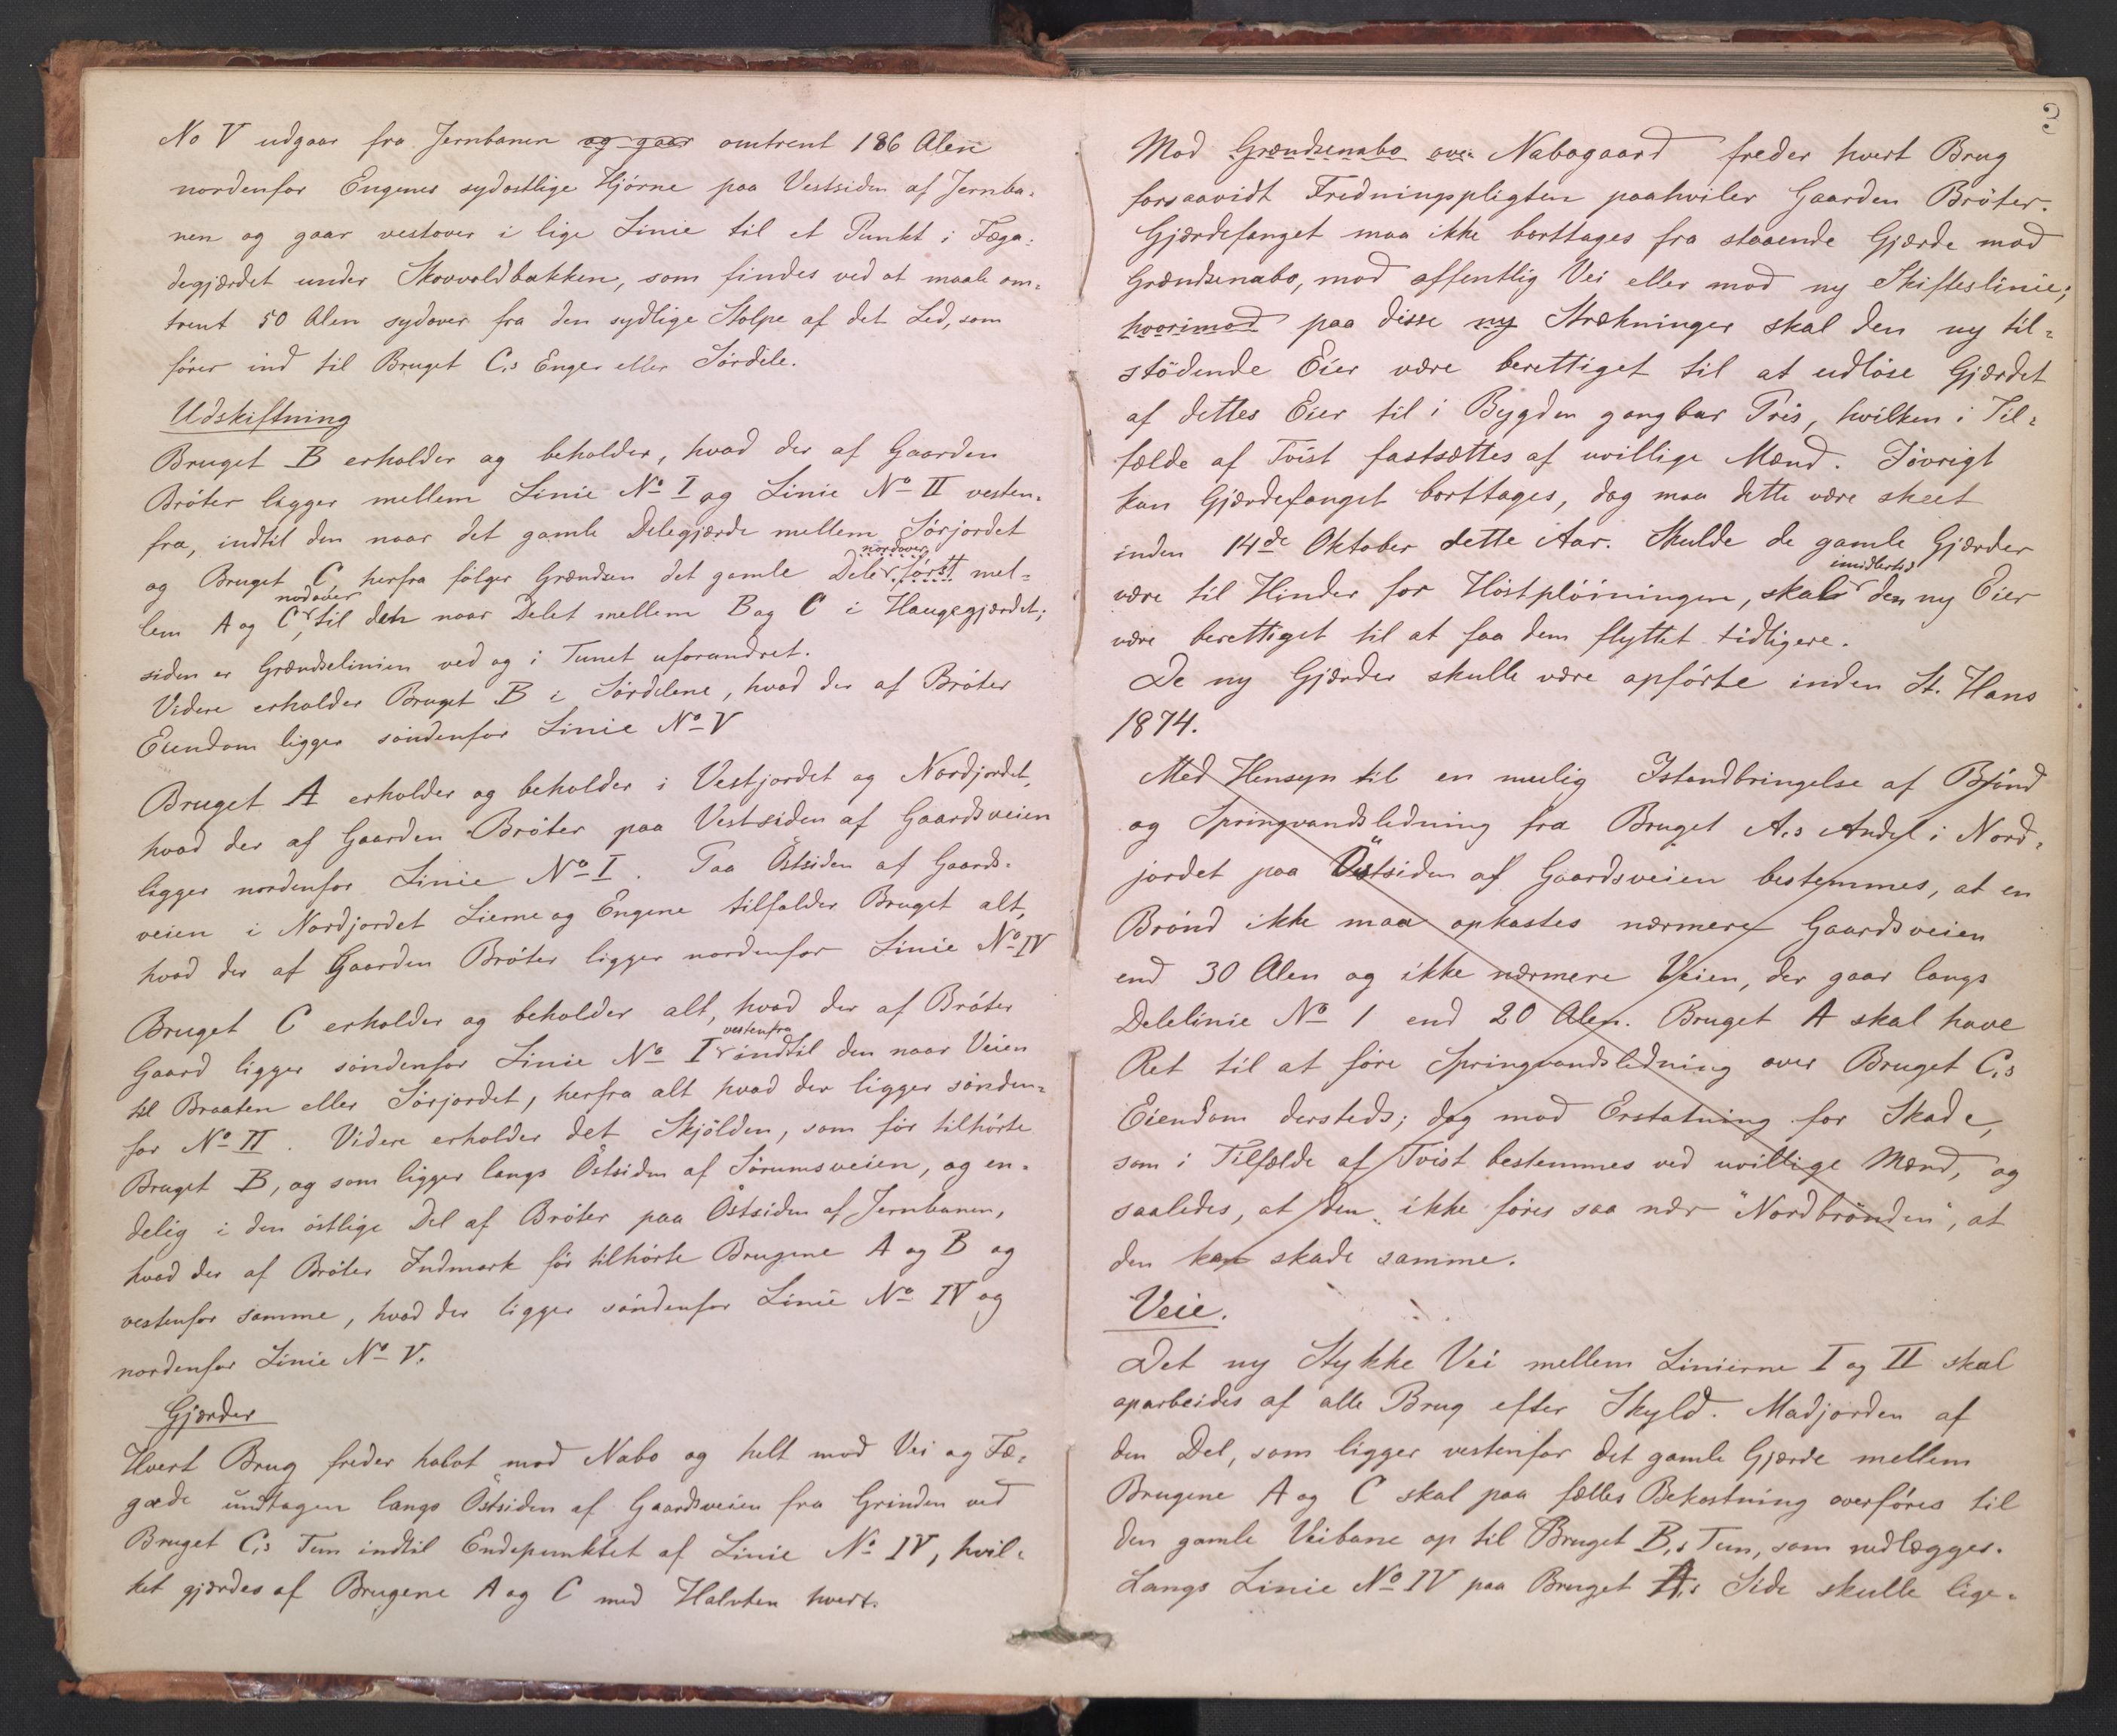 No V udgaar fra Jernbanen og gaar omtrent 186 Alen
nordenfor Engenes sydostlige Hjørne paa Vestsiden af Jernba-
nen og gaar vestover i lige Linie til et Punkt i Fæga-
degjærdet under Skovvoldbakken, som findes ved at maale om-
trent 50 Alen sydover fra den sydlige Stolpe af det Led, som
fører ind til Bruget C,s Enger eller Sørdele.
Udskiftning
Bruget B erholder og beholder, hvad der af Gaarden
Brøter ligger mellem Linie No I og Linie No II vesten-
fra, indtil den naar det gamle Delegjærde mellem Sørjordet
og Bruget C, herfra følger Grændsen det gamle Dele nordover først mel-
lem A og C nordover, til den naar Delet mellem B og C i Haugegjærdet;
siden er Grændselinien ved og i Tunet uforandret.
Videre erholder Bruget B i Sørdelene, hvad der af Brøter
Eiendom ligger søndenfor Linie No V
Bruget A erholder og beholder i Vestjordet og Nordjordet,
hvad der af Gaarden Brøter paa Vestsiden af Gaardsveien
ligger nordenfor Linie No I. Paa Östsiden af Gaards-
veien i Nordjordet Lierne og Engene tilfalder Bruget alt,
hvad der af Gaarden Brøter ligger nordenfor Linie No IV
Bruget C erholder og beholder alt, hvad der af Brøter
Gaard ligger søndenfor Linie No I vestenfra indtil den naar Veien
til Braaten eller Sørjordet, herfra alt hvad der ligger sønden-
for No II. Videre erholder det Skjölden, som før tilhørte
Bruget B, og som ligger langs Östsiden af Sørumsveien, og en-
delig i den östlige Del af Brøter paa Östsiden af Jernbanen,
hvad der af Brøter Indmark før tilhørte Brugene A og B og
vestenfor samme, hvad der ligger søndenfor Linie No IV og
nordenfor Linie No V.
Gjærder
Hvert Brug freder halvt mod Nabo og helt mod Vei og Fæ-
gade undtagen langs Östsiden af Gaardsveien fra Grinden ved
Bruget C,s Tun indtil Endepunktet af Linie No IV, hvil-
ket gjærdes af Brugene A og C med Halvten hvert.
3
Mod Grændsenabo Nabogaard freder hvert Brug
forsaavidt Fredningspligten paahviler Gaarden Bröter.
Gjærdefanget maa ikke borttages fra staaende Gjærde mod
Grændsenabo, mod offentlig Vei eller mod ny Skifteslinie;
hvorimod paa disse ny Strækninger skal den ny til-
stödende Eier være berettiget til at udlöse Gjærdet
af dettes Eier til i Bygden gangbar Pris, hvilken i Til-
fælde af Tvist fastsættes af uvillige Mænd. Iövrigt
kan Gjærdefanget borttages, dog maa dette være skeet
inden 14de Oktober dette Aar. Skulde de gamle Gjærder
være til Hinder for Höstplöiningen, skal imidlertid den ny Eier
være berettiget til at faa dem flyttet tidligere.
De ny Gjærder skulle være opførte inden St. Hans
1874.
Med Hensyn til en mulig Istandbringelse af Brönd
og Springvandsledning fra Bruget A,s Andel i Nord-
jordet paa Östsiden af Gaardsveien bestemmes, at en
Brönd ikke maa opkastes nærmere Gaardsveien
end 30 Alen og ikke nærmere Veien, der gaar langs
Delelinie No 1 end 20 Alen. Bruget A skal have
Ret til at före Springvandsledning over Bruget C,s
Eiendom dersteds; dog mod Erstatning for Skade,
som i Tilfælde af Tvist bestemmes ved uvillige Mænd, og
saaledes, at den ikke föres saa nær "Nordbrönden", at
den kan skade samme.
Veie.
Det ny Stykke Vei mellem Linierne I og II skal
oparbeides af alle Brug efter Skyld. Madjorden af
den Del, som ligger vestenfor det gamle Gjærde mellem
Brugene A og C skal paa fælles Bekostning overføres til
den gamle Veibane op til Bruget B,s Tun, som nedlægges.
Langs Linie No IV paa Bruget A,s Side skulle lige-